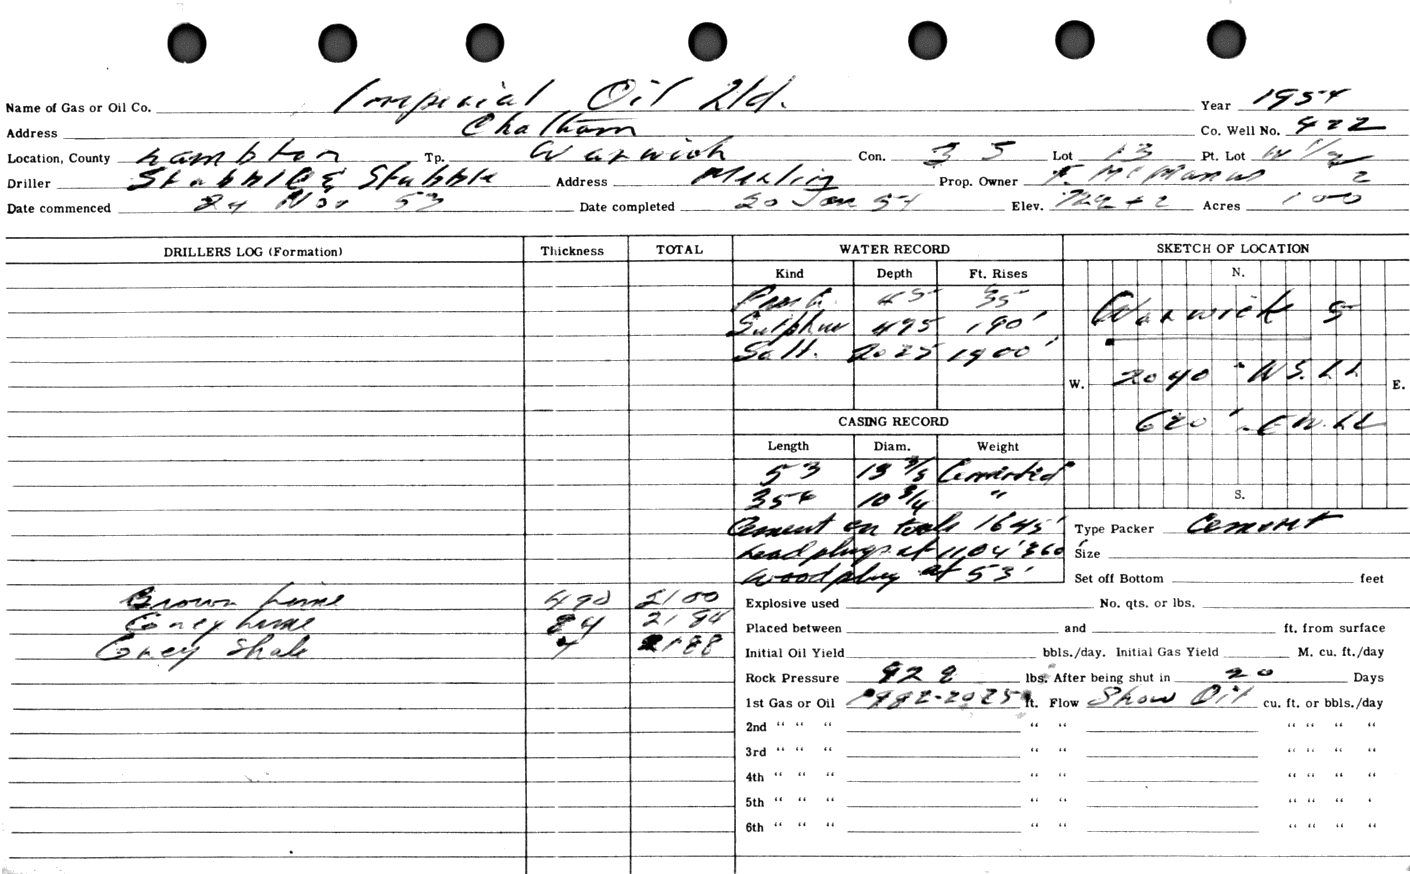 Name of Gas or Oil Co. Imperial Oil Ltd. Year 1954
Address Chatham Co. Well No. 422
Location, County Lambton Tp. Warwick Con. 3 S Lot 13 Pt. Lot W 1/2
Driller Stubble & Stubble Address Merlin Prop. Owner F. McManus
Date commenced 24 Nov 53 Date completed 20 Jan 54 Elev. 729 + 2 Acres 100
DRILLERS LOG (Formation) Thickness TOTAL WATER RECORD SKETCH OF LOCATION
Kind Depth Ft. Rises N.
Fresh 45 35
Sulphur 495 190' Warwick 5
Salt. 2025 1900'
W. 2040 E.
CASING RECORD
Length Diam. Weight
53 13 3/8 Cemented
354 10 3/4 " S.
Cement on tools 1645' Type Packer Cement
Lead plugs at 1104' 360' Size
Wood plug at 53' Set off Bottom feet
Brown Lime 490 2100 Explosive used No. qts. or lbs.
Grey Lime 84 2184 Placed between and ft. from surface
Grey Shale 4 2188 Initial Oil Yield bbls./day. Initial Gas Yield M. cu. ft./day
Rock Pressure 928 lbs. After being shut in 20 Days
1st Gas or Oil 1992-2025 ft. Flow Show Oil cu. ft. or bbls./day
2nd “ “ “ “ “ “ “ “ “
3rd “ “ “ “ “ “ “ “ “
4th “ “ “ “ “ “ “ “ “
5th “ “ “ “ “ “ “ “ ‘
6th “ “ “ “ “ “ “ “ “